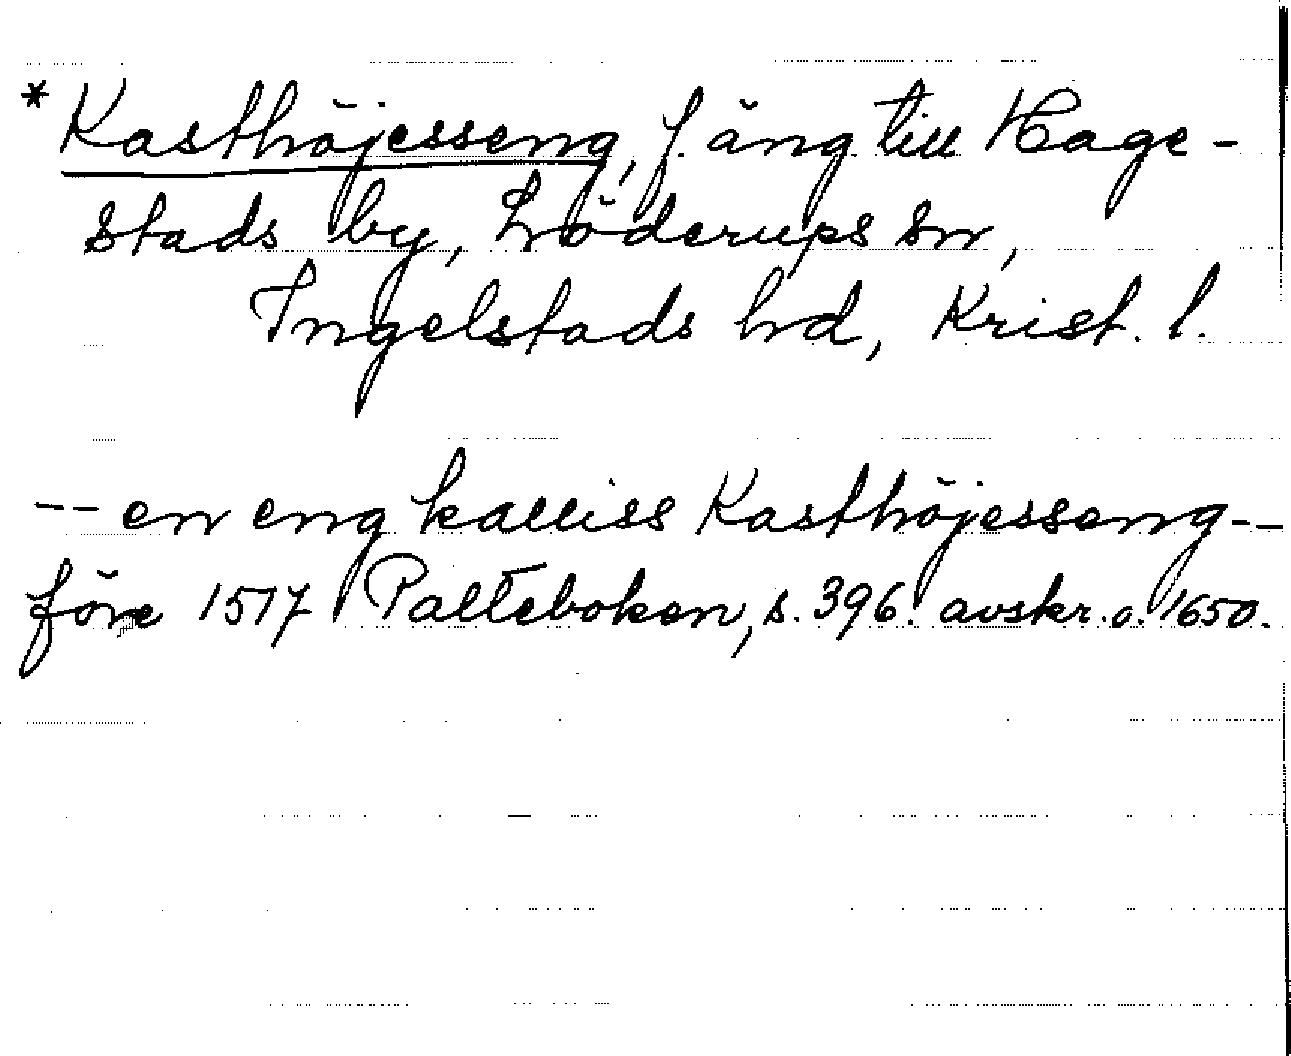 *Kasthöjesseng, f. äng till Hage-
stads by, Löderups sn,
Ingelstads hd, Krist. l.
-- en eng kalliss Kasthöjesseng--
före 1517 Palteboken, s. 396. avskr. o. 1650.